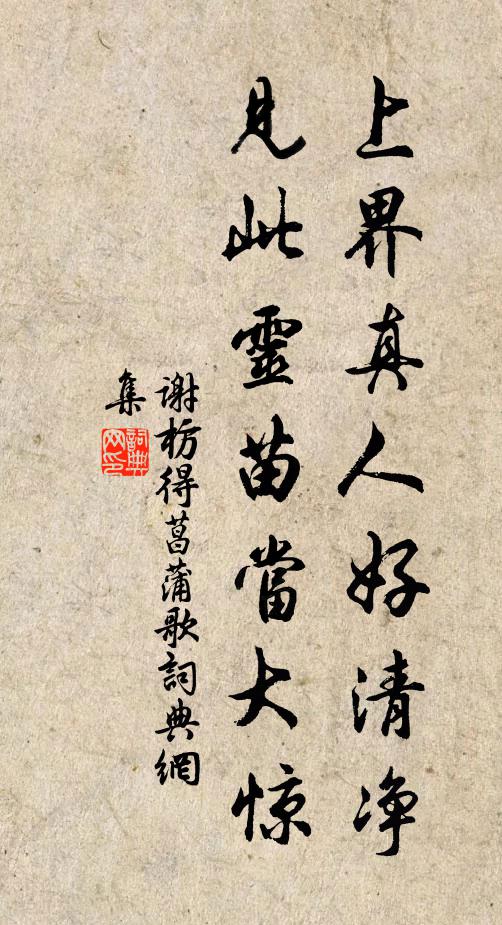 上界真人好清净
見此靈苗當大惊
謝枋得菖蒲歌詞典網
集
詞典网印